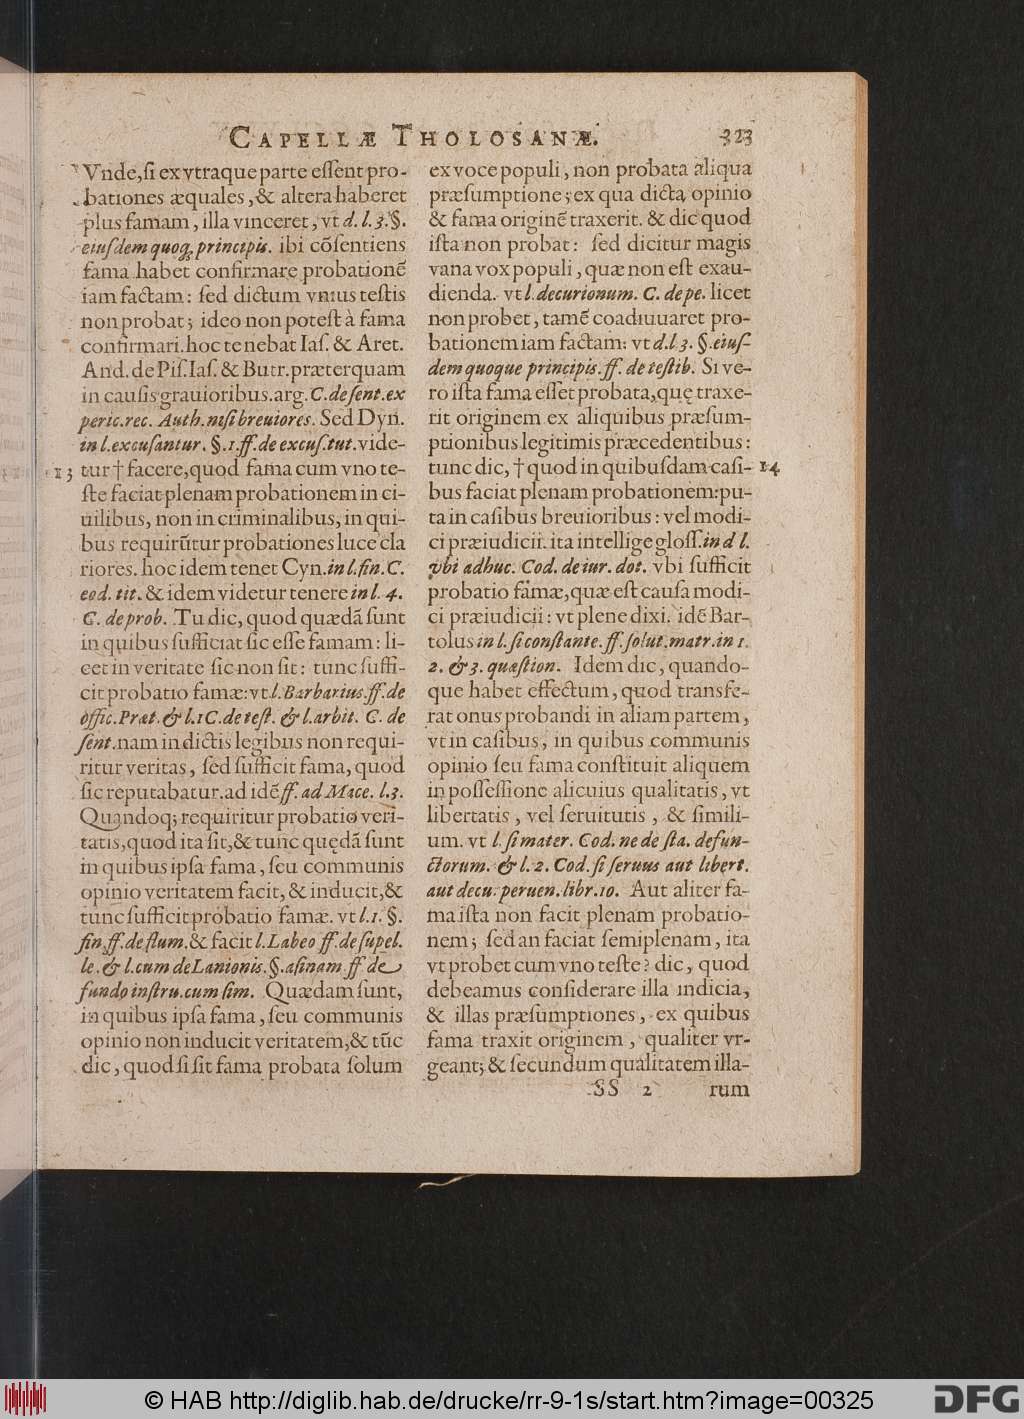 CAPELLÆ THOLOSANÆ. 323
Vnde, ſi ex vtraque parte eſſent pro-
bationes æquales, & altera haberet
plus famam, illa vinceret, vt d. l. 3. §.
eiuſdem quoq; principis. ibi cõſentiens
fama habet confirmare probationẽ
iam factam: ſed dictum vnius teſtis
non probat; ideo non poteſt à fama
confirmari. hoc tenebat Iaſ. & Aret.
And. de Piſ. Iaſ. & Butr. præterquam
in cauſis grauioribus. arg. C. de ſent. ex
peric. rec. Auth. niſi breuiores. Sed Dyn.
in l. excuſantur. §. 1. ff. de excuſ. tut. vide-
13 tur † facere, quod fama cum vno te-
ſte faciat plenam probationem in ci-
uilibus, non in criminalibus, in qui-
bus requirũtur probationes luce cla
riores. hoc idem tenet Cyn. in l. fin. C.
eod. tit. & idem videtur tenere in l. 4.
C. de prob. Tu dic, quod quædã ſunt
in quibus ſufficiat ſic eſſe famam: li-
cet in veritate ſic non ſit: tunc ſuffi-
cit probatio famæ: vt l. Barbarius. ff. de
offic. Præt. & l. 1 C. de teſt. & l. arbit. C. de
ſent. nam in dictis legibus non requi-
ritur veritas, ſed ſufficit fama, quod
ſic reputabatur. ad idẽ ff. ad Mace. l. 3.
Quandoq; requiritur probatio veri-
tatis, quod ita ſit, & tunc quędã ſunt
in quibus ipſa fama, ſeu communis
opinio veritatem facit, & inducit, &
tunc ſufficit probatio famæ. vt l. 1. §.
fin. ff. de flum. & facit l. Labeo ff. de ſupel.
le. & l. cum de Lanionis. §. aſinam ff. de
fundo inſtru. cum ſim. Quædam ſunt,
in quibus ipſa fama, ſeu communis
opinio non inducit veritatem, & tũc
dic, quod ſi ſit fama probata ſolum
ex voce populi, non probata aliqua
præſumptione; ex qua dicta opinio
& fama originẽ traxerit. & dic quod
iſta non probat: ſed dicitur magis
vana vox populi, quæ non eſt exau-
dienda. vt l. decurionum. C. de pe. licet
non probet, tamẽ coadiuuaret pro-
bationem iam factam: vt d. l 3. §. eiuſ-
dem quoque principis. ff. de teſtib. Si ve-
ro iſta fama eſſet probata, quę traxe-
rit originem ex aliquibus præſum-
ptionibus legitimis præcedentibus:
tunc dic, † quod in quibuſdam caſi- 14
bus faciat plenam probationem: pu-
ta in caſibus breuioribus: vel modi-
ci præiudicii. ita intellige gloſſ. in d l.
vbi adhuc. Cod. de iur. dot. vbi ſufficit
probatio famæ, quæ eſt cauſa modi-
ci præiudicii: vt plene dixi. idẽ Bar-
tolus in l. ſi conſtante. ff. ſolut. matr. in 1.
2. & 3. quæſtion. Idem dic, quando-
que habet effectum, quod transfe-
rat onus probandi in aliam partem,
vt in caſibus, in quibus communis
opinio ſeu fama conſtituit aliquem
in poſſeſſione alicuius qualitatis, vt
libertatis, vel ſeruitutis, & ſimili-
um. vt l. ſi mater. Cod. ne de ſta. defun-
ctorum. & l. 2. Cod. ſi ſeruus aut libert.
aut decu. peruen. libr. 10. Aut aliter fa-
ma iſta non facit plenam probatio-
nem; ſed an faciat ſemiplenam, ita
vt probet cum vno teſte? dic, quod
debeamus conſiderare illa indicia,
& illas præſumptiones, ex quibus
fama traxit originem, qualiter vr-
geant; & ſecundum qualitatem illa-
SS 2 rum
© HAB http://diglib.hab.de/drucke/rr-9-1s/start.htm?image=00325 DFG